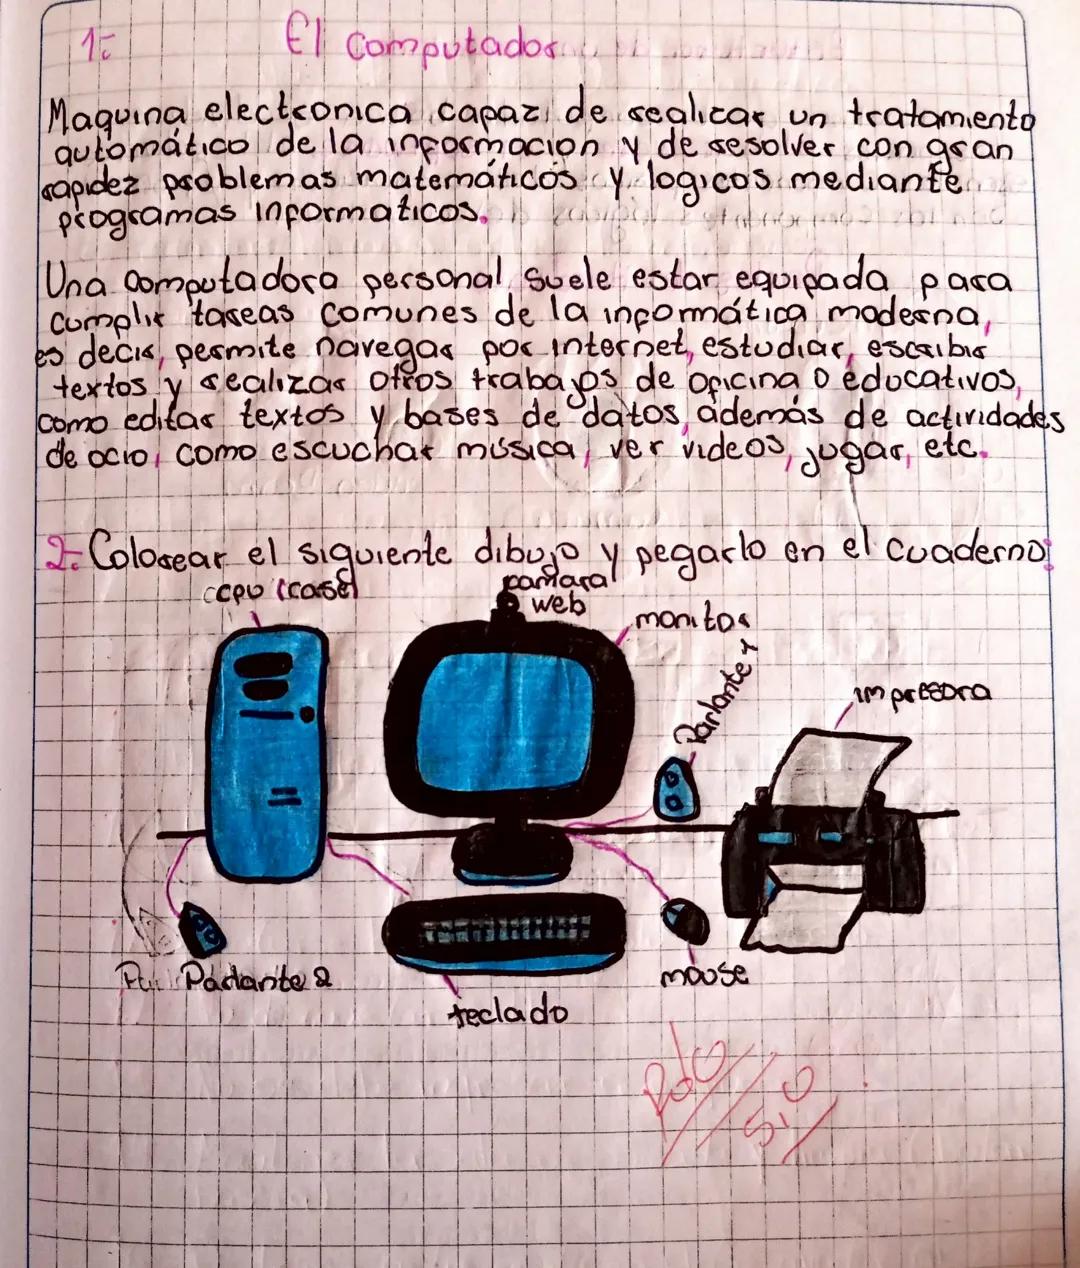 1:
El Computador
Maquina electronica capaz de realizar un tratamiento
automático de la informacion y de resolver con gran
rapidez problemas matemáticos y logicos mediante
programas informaticos.
Una computadora personal suele estar equipada para
cumplir tareas comunes de la informática moderna,
es decir, permite navegar por internet, estudiar, escribir
textos y realizar otros trabajos de oficina o educativos,
como editar textos y bases de datos, además de actividades
de ocio, como escuchar música, ver videos, jugar, etc.
2- Colorear el siguiente dibujo y pegarlo en el cuaderno:
cpu (case)
camara
web
monitor
Parlante 1
impresora
Parlante 2
mouse
teclado
5,0